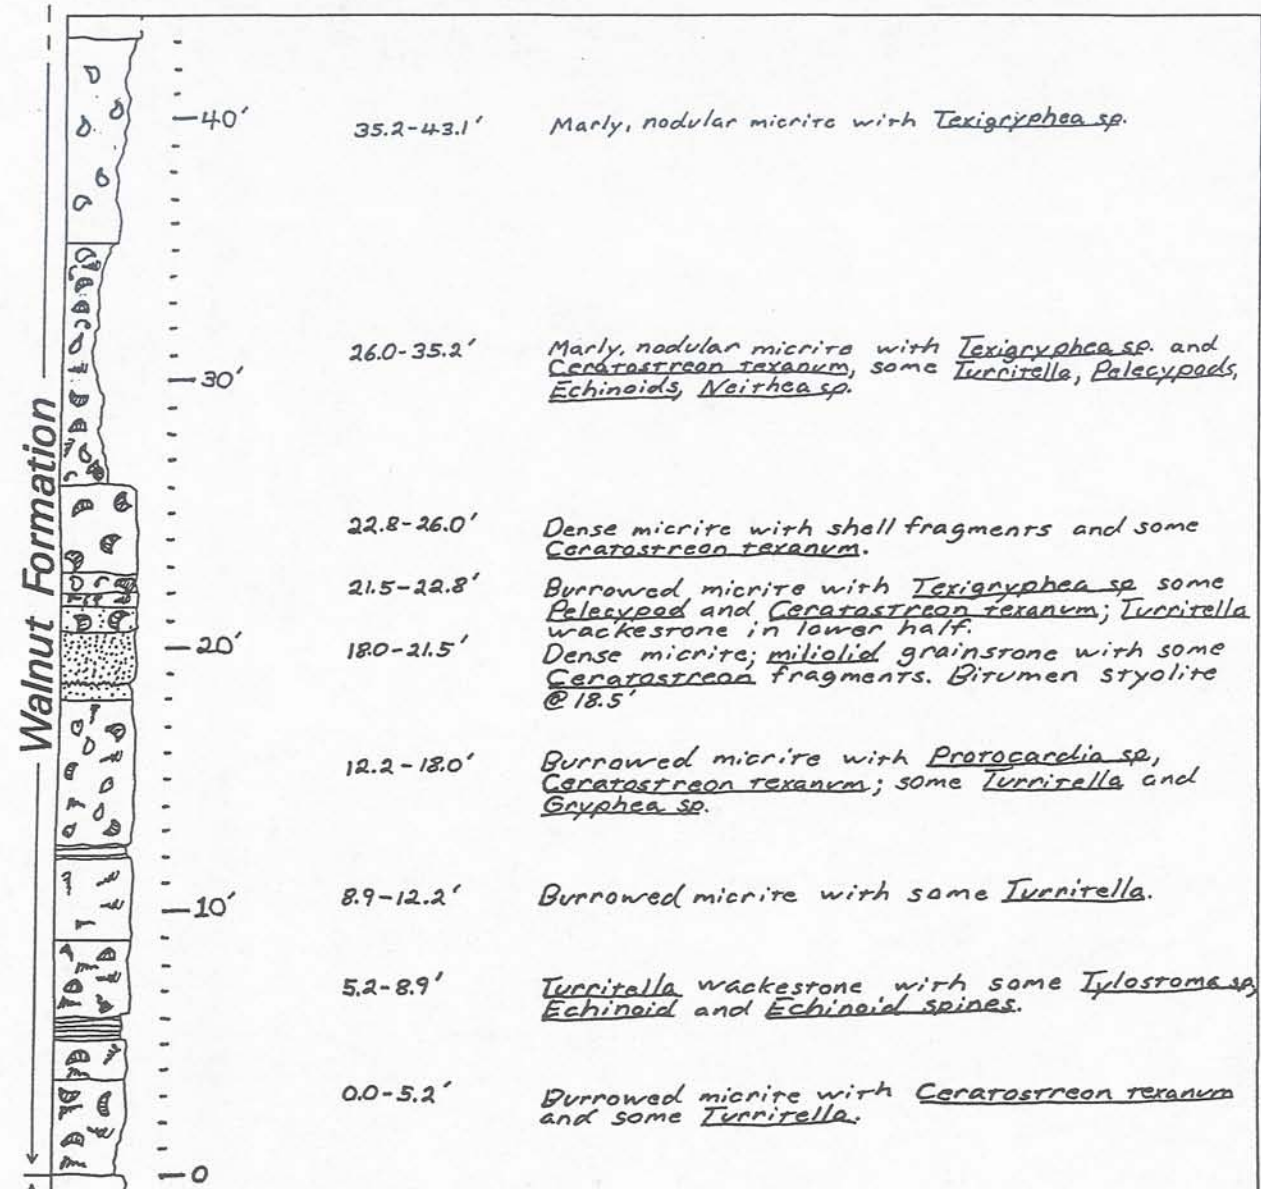 Walnut Formation
40'
35.2-43.1' Marly, nodular micrite with Texigryphea sp.
26.0-35.2' Marly, nodular micrite with Texigryphea sp. and
Ceratostreon texanum, some Turritella, Pelecypods,
Echinoids, Neithea sp.
30'
22.8-26.0' Dense micrite with shell fragments and some
Ceratostreon texanum.
21.5-22.8' Burrowed micrite with Texigryphea sp some
Pelecypod and Ceratostreon texanum; Turritella
wackestone in lower half.
20'
18.0-21.5' Dense micrite; miliolid grainstone with some
Ceratostreon fragments. Bitumen styolite
@ 18.5'
12.2-18.0' Burrowed micrite with Protocardia sp,
Ceratostreon texanum; some Turritella and
Gryphea sp.
10'
8.9-12.2' Burrowed micrite with some Turritella.
5.2-8.9' Turritella wackestone with some Tylostoma sp,
Echinoid and Echinoid spines.
0.0-5.2' Burrowed micrite with Ceratostreon texanum
and some Turritella.
0